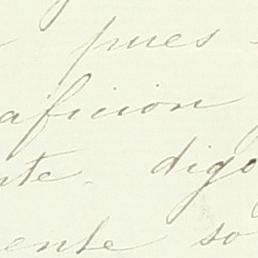 pues
aficion
nte. digo
ente so